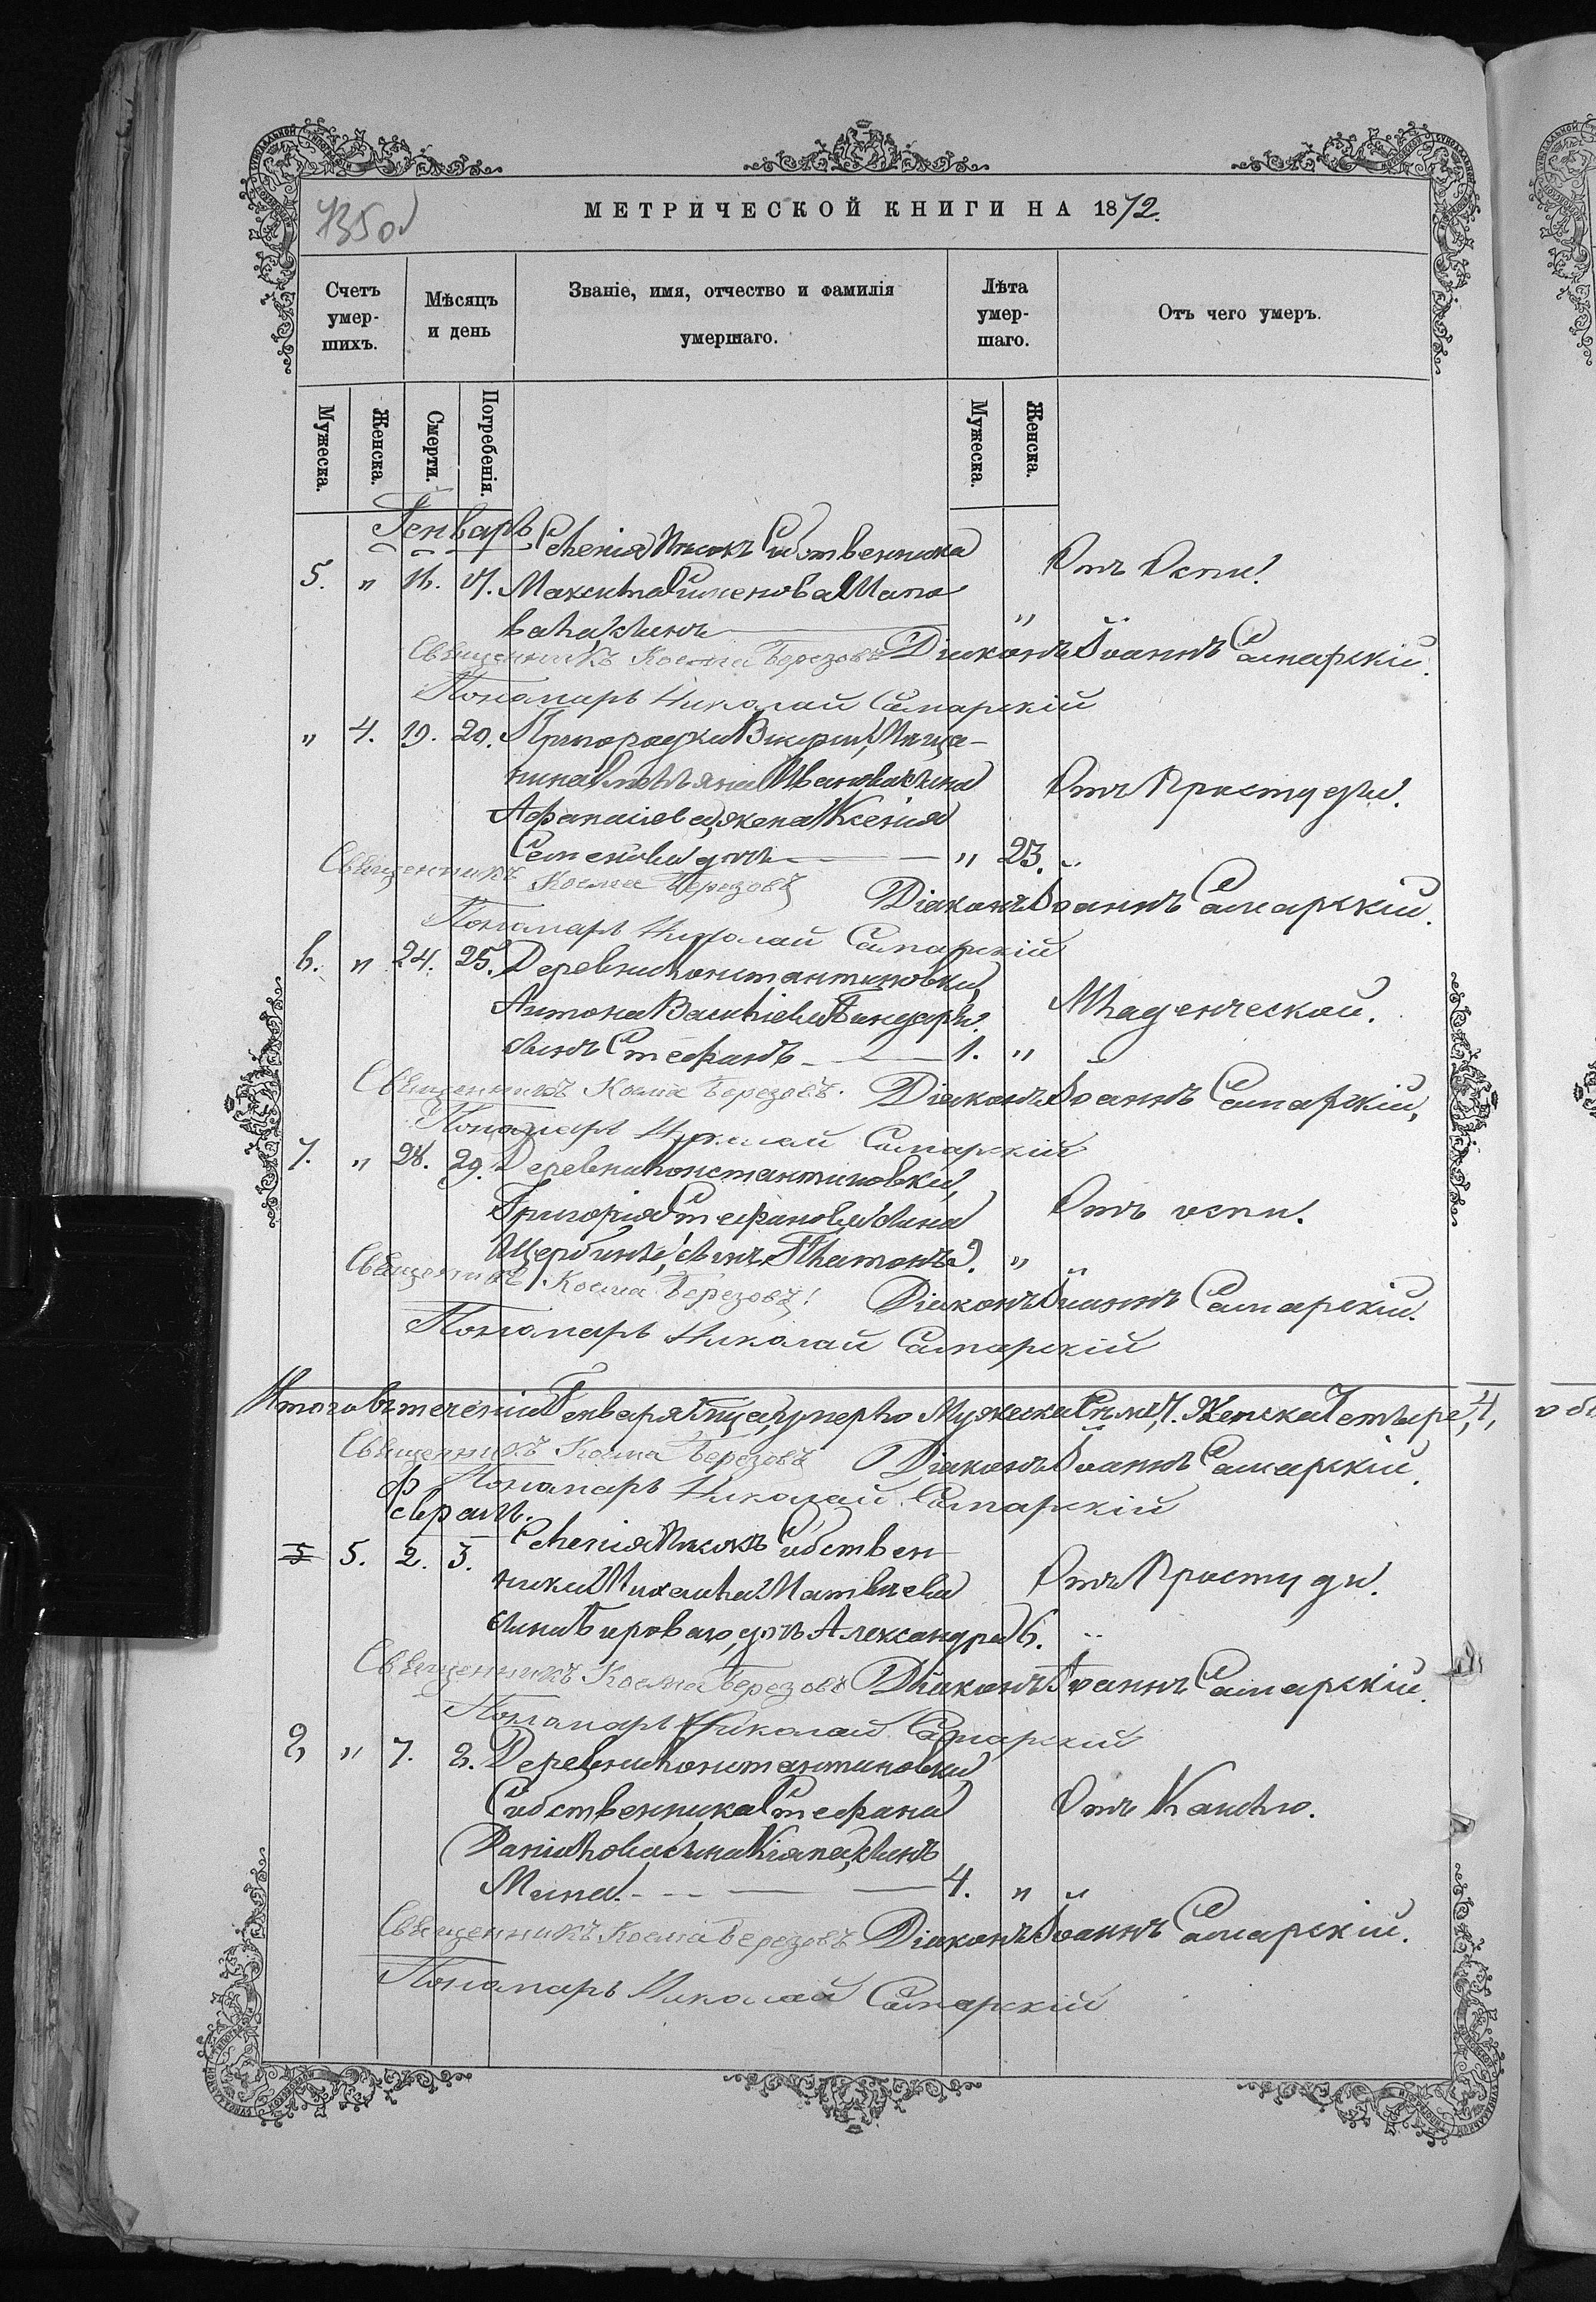 735об
МЕТРИЧЕСКОЙ КНИГИ НА 1872.
Счетъ умер-шихъ.
Мѣсяцъ и день
Званіе, имя, отчество и фамилія умершаго.
Лѣта умер-шаго.
Отъ чего умеръ.
Мужеска. Женска. Смерти. Погребенія. Мужеска. Женска.
Генварь
Селенія Собственника
5. " 16. 17. Максима Отъ Оспи.
Священникъ Косма Березовъ Діаконъ Іоаннъ Самарскій.
Пономарь Николай Самарскій
" 4. 19. 20. Пригородки Мѣща-
нина Иванова сина Отъ Простуди.
Афанасіева, жена Ксенія
Семенова дочь " 23. "
Священникъ Косма Березовъ Діаконъ Іоаннъ Самарскій.
Пономарь Николай Самарскій
6. " 24. 25. Деревни Константиновки,
Антона Василіева Младенческой.
синъ Стефанъ 1. " "
Священникъ Косма Березовъ. Діаконъ Іоаннъ Самарскій,
Пономарь Николай Самарскій
7. " 28. 29. Деревни Константиновки,
Григорія Стефанова сина Отъ оспи.
Щербини, синъ Платонъ 2. " "
Священникъ Косма Березовъ! Діаконъ Іоаннъ Самарскій.
Пономарь Николай Самарскій
Итого въ теченіи Генваря м-ца, умерло Мужеска Семь, 7. Женска Четыре, 4, обо
Священникъ Косма Березовъ Діаконъ Іоаннъ Самарскій.
Пономарь Николай Самарскій
Февраль.
Селенія Собствен-
5 5. 2. 3. ника Михаила Матвѣева Отъ Простуди.
сина дочь Александра 6. "
Священникъ Косма Березовъ Діаконъ Іоаннъ Самарскій.
Пономарь Николай Самарскій
8, " 7. 8. Деревни Константиновки
Собственника Стефана Отъ Кашлю.
Даніилова сина синъ
Мина. 4. " "
Священникъ Косма Березовъ Діаконъ Іоаннъ Самарскій.
Пономарь Николай Самарскій